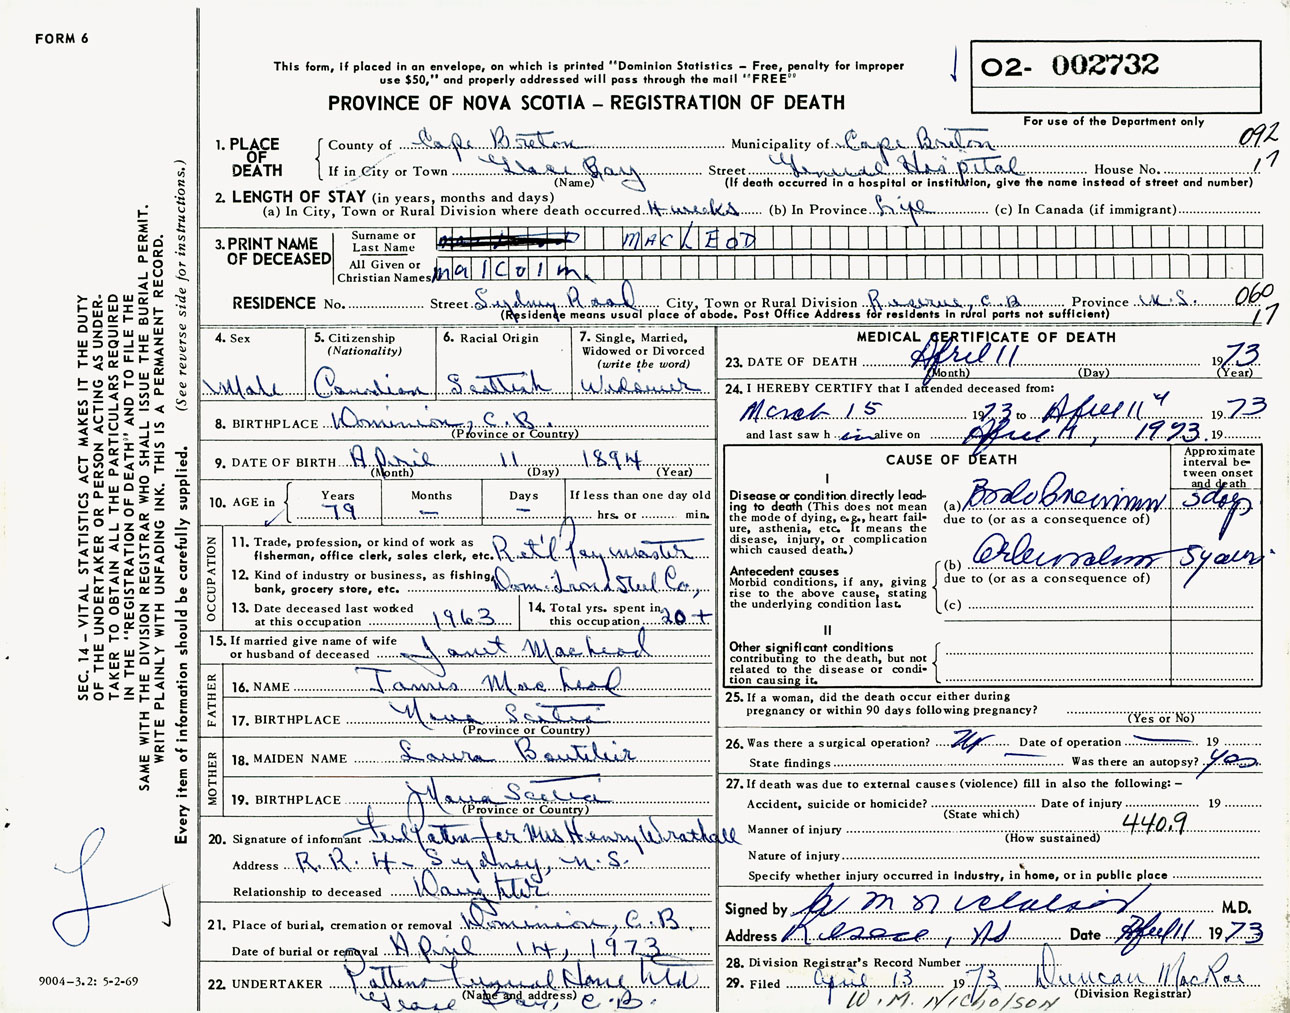 FORM 6
This form, if placed in an envelope, on which is printed "Dominion Statistics – Free, penalty for improper
use $50," and properly addressed will pass through the mail "FREE"
PROVINCE OF NOVA SCOTIA – REGISTRATION OF DEATH
O2- 002732
For use of the Department only
092
17
1. PLACE OF DEATH County of Cape Breton Municipality of Cape Breton
If in City or Town Glace Bay Street General Hospital House No.
(Name) (If death occurred in a hospital or institution, give the name instead of street and number)
2. LENGTH OF STAY (in years, months and days)
(a) In City, Town or Rural Division where death occurred 4 weeks (b) In Province Life (c) In Canada (if immigrant)
3. PRINT NAME OF DECEASED Surname or Last Name MACLEOD
All Given or Christian Names Malcolm
RESIDENCE No. Street Sydney Road City, Town or Rural Division Reserve, C.B Province N.S. 060
(Residence means usual place of abode. Post Office Address for residents in rural parts not sufficient) 17
4. Sex Male
5. Citizenship (Nationality) Canadian
6. Racial Origin Scottish
7. Single, Married, Widowed or Divorced (write the word) Widower
8. BIRTHPLACE Dominion, C.B.
(Province or Country)
9. DATE OF BIRTH April 11 1894
(Month) (Day) (Year)
10. AGE in Years 79 Months – Days – If less than one day old
hrs. or min.
OCCUPATION
11. Trade, profession, or kind of work as fisherman, office clerk, sales clerk, etc. Ret'd Paymaster
12. Kind of industry or business, as fishing, bank, grocery store, etc. Dom. Iron & Steel Co.,
13. Date deceased last worked at this occupation 1963
14. Total yrs. spent in this occupation 20+
15. If married give name of wife or husband of deceased Janet MacLeod
FATHER
16. NAME James MacLeod
17. BIRTHPLACE Nova Scotia
(Province or Country)
MOTHER
18. MAIDEN NAME Laura Boutilier
19. BIRTHPLACE Nova Scotia
(Province or Country)
20. Signature of informant Patten for Mrs Henry Wrathall
Address R.R. 4 – Sydney, N.S.
Relationship to deceased Daughter
21. Place of burial, cremation or removal Dominion, C.B.
Date of burial or removal April 14, 1973
22. UNDERTAKER Patten Funeral Home Ltd
(Name and address)
Glace Bay, C.B.
MEDICAL CERTIFICATE OF DEATH
23. DATE OF DEATH April 11 1973
(Month) (Day) (Year)
24. I HEREBY CERTIFY that I attended deceased from:
March 15 1973 to April 11 1973
and last saw h im alive on April 11, 1973. 19
CAUSE OF DEATH
Approximate interval between onset and death
I
Disease or condition directly leading to death (This does not mean the mode of dying, e.g., heart failure, asthenia, etc. It means the disease, injury, or complication which caused death.)
(a) 5 days
due to (or as a consequence of)
Antecedent causes
Morbid conditions, if any, giving rise to the above cause, stating the underlying condition last.
(b) 5 years
due to (or as a consequence of)
(c)
II
Other significant conditions contributing to the death, but not related to the disease or condition causing it.
25. If a woman, did the death occur either during pregnancy or within 90 days following pregnancy?
(Yes or No)
26. Was there a surgical operation? Date of operation 19
State findings Was there an autopsy? yes
27. If death was due to external causes (violence) fill in also the following: –
Accident, suicide or homicide? Date of injury 19
(State which)
Manner of injury 440.9
(How sustained)
Nature of injury
Specify whether injury occurred in industry, in home, or in public place
Signed by W M Nicholson M.D.
Address Reserve, NS Date April 11 1973
28. Division Registrar's Record Number
29. Filed April 13 1973 Duncan MacRae
(Division Registrar)
W. M. NICHOLSON
SEC. 14 – VITAL STATISTICS ACT MAKES IT THE DUTY
OF THE UNDERTAKER OR PERSON ACTING AS UNDER-
TAKER TO OBTAIN ALL THE PARTICULARS REQUIRED
IN THE "REGISTRATION OF DEATH" AND TO FILE THE
SAME WITH THE DIVISION REGISTRAR WHO SHALL ISSUE THE BURIAL PERMIT.
WRITE PLAINLY WITH UNFADING INK. THIS IS A PERMANENT RECORD.
Every item of information should be carefully supplied. (See reverse side for instructions.)
9004-3.2: 5-2-69